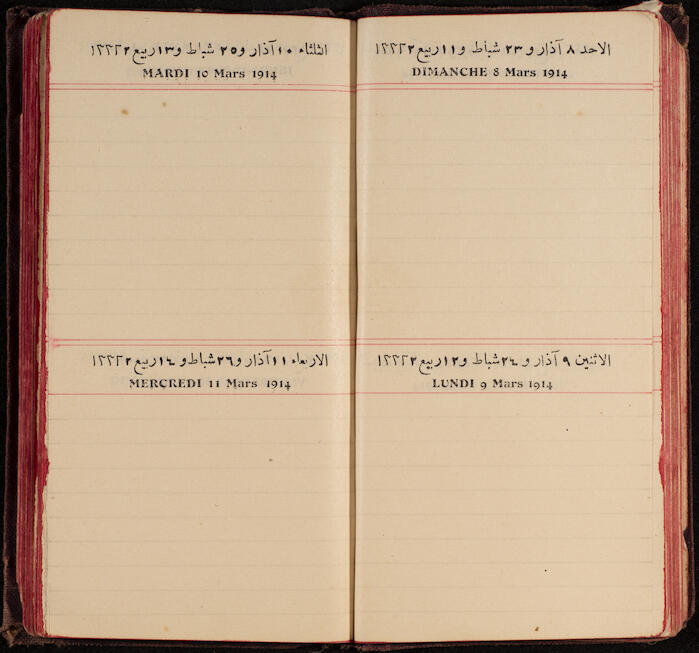 الاحد ٨ آذار و ٢٣ شباط و ١١ ربيع ٢ ١٣٣٢
DIMANCHE 8 Mars 1914
الاثنين ٩ آذار و ٢٤ شباط و ١٢ ربيع ٢ ١٣٣٢
LUNDI 9 Mars 1914
الثلثاء ١٠ آذار و ٢٥ شباط و ١٣ ربيع ٢ ١٣٣٢
MARDI 10 Mars 1914
الاربعاء ١١ آذار و ٢٦ شباط و ١٤ ربيع ٢ ١٣٣٢
MERCREDI 11 Mars 1914